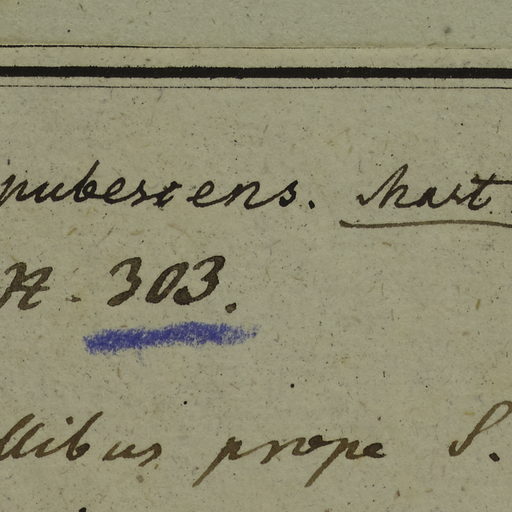 pubescens. Mart.
N. 303.
llibus prope S.